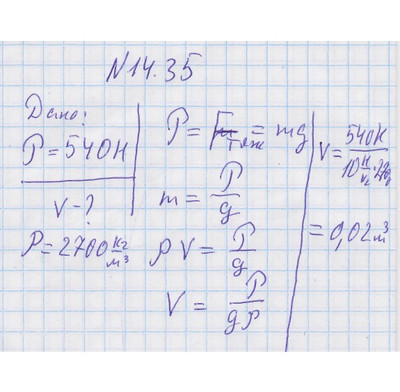 N14.35
Дано:
P = 540Н
V - ?
ρ = 2700 кг/м³
P = Fтяж = mg
m = P/g
ρV = P/g
V = P/gρ
V = 540Н
= 0,02 м³